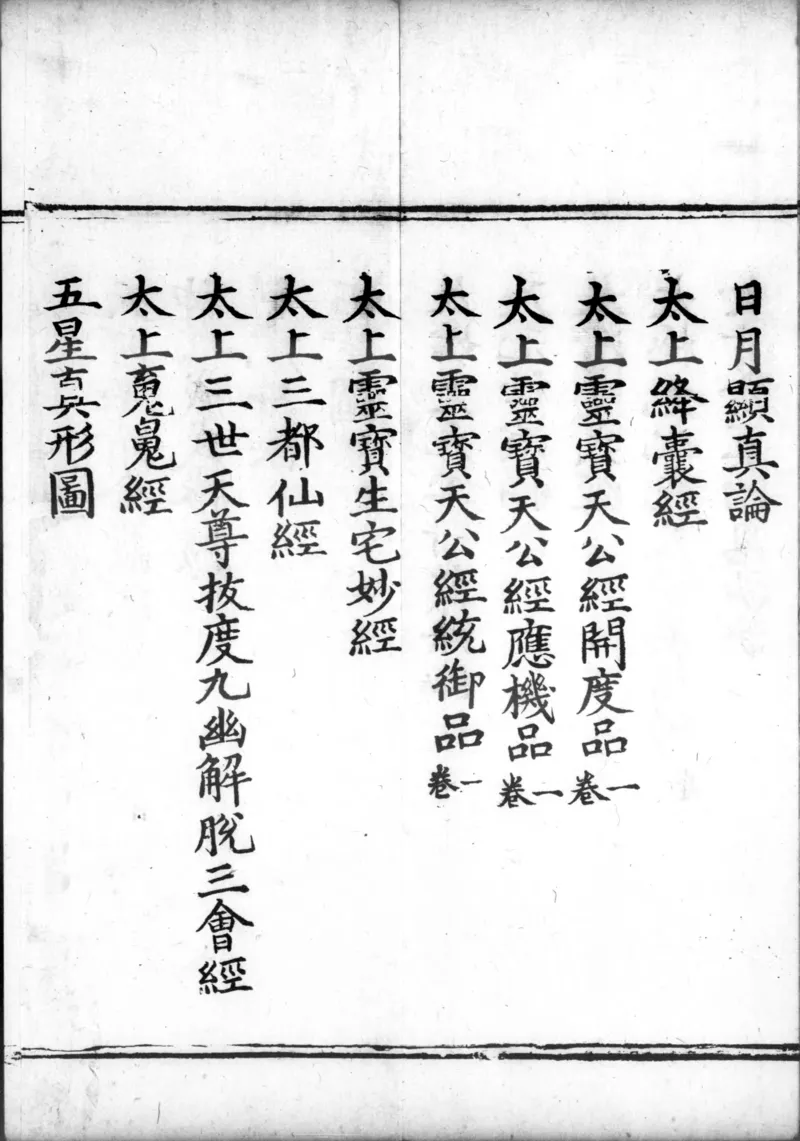 日月顯真論
太上絳囊經
太上靈寶天公經開度品一卷
太上靈寶天公經應機品一卷
太上靈寶天公經統御品一卷
太上靈寶生宅妙經
太上三都仙經
太上三世天尊拔度九幽解脫三會經
太上魂魄經
五星真形圖